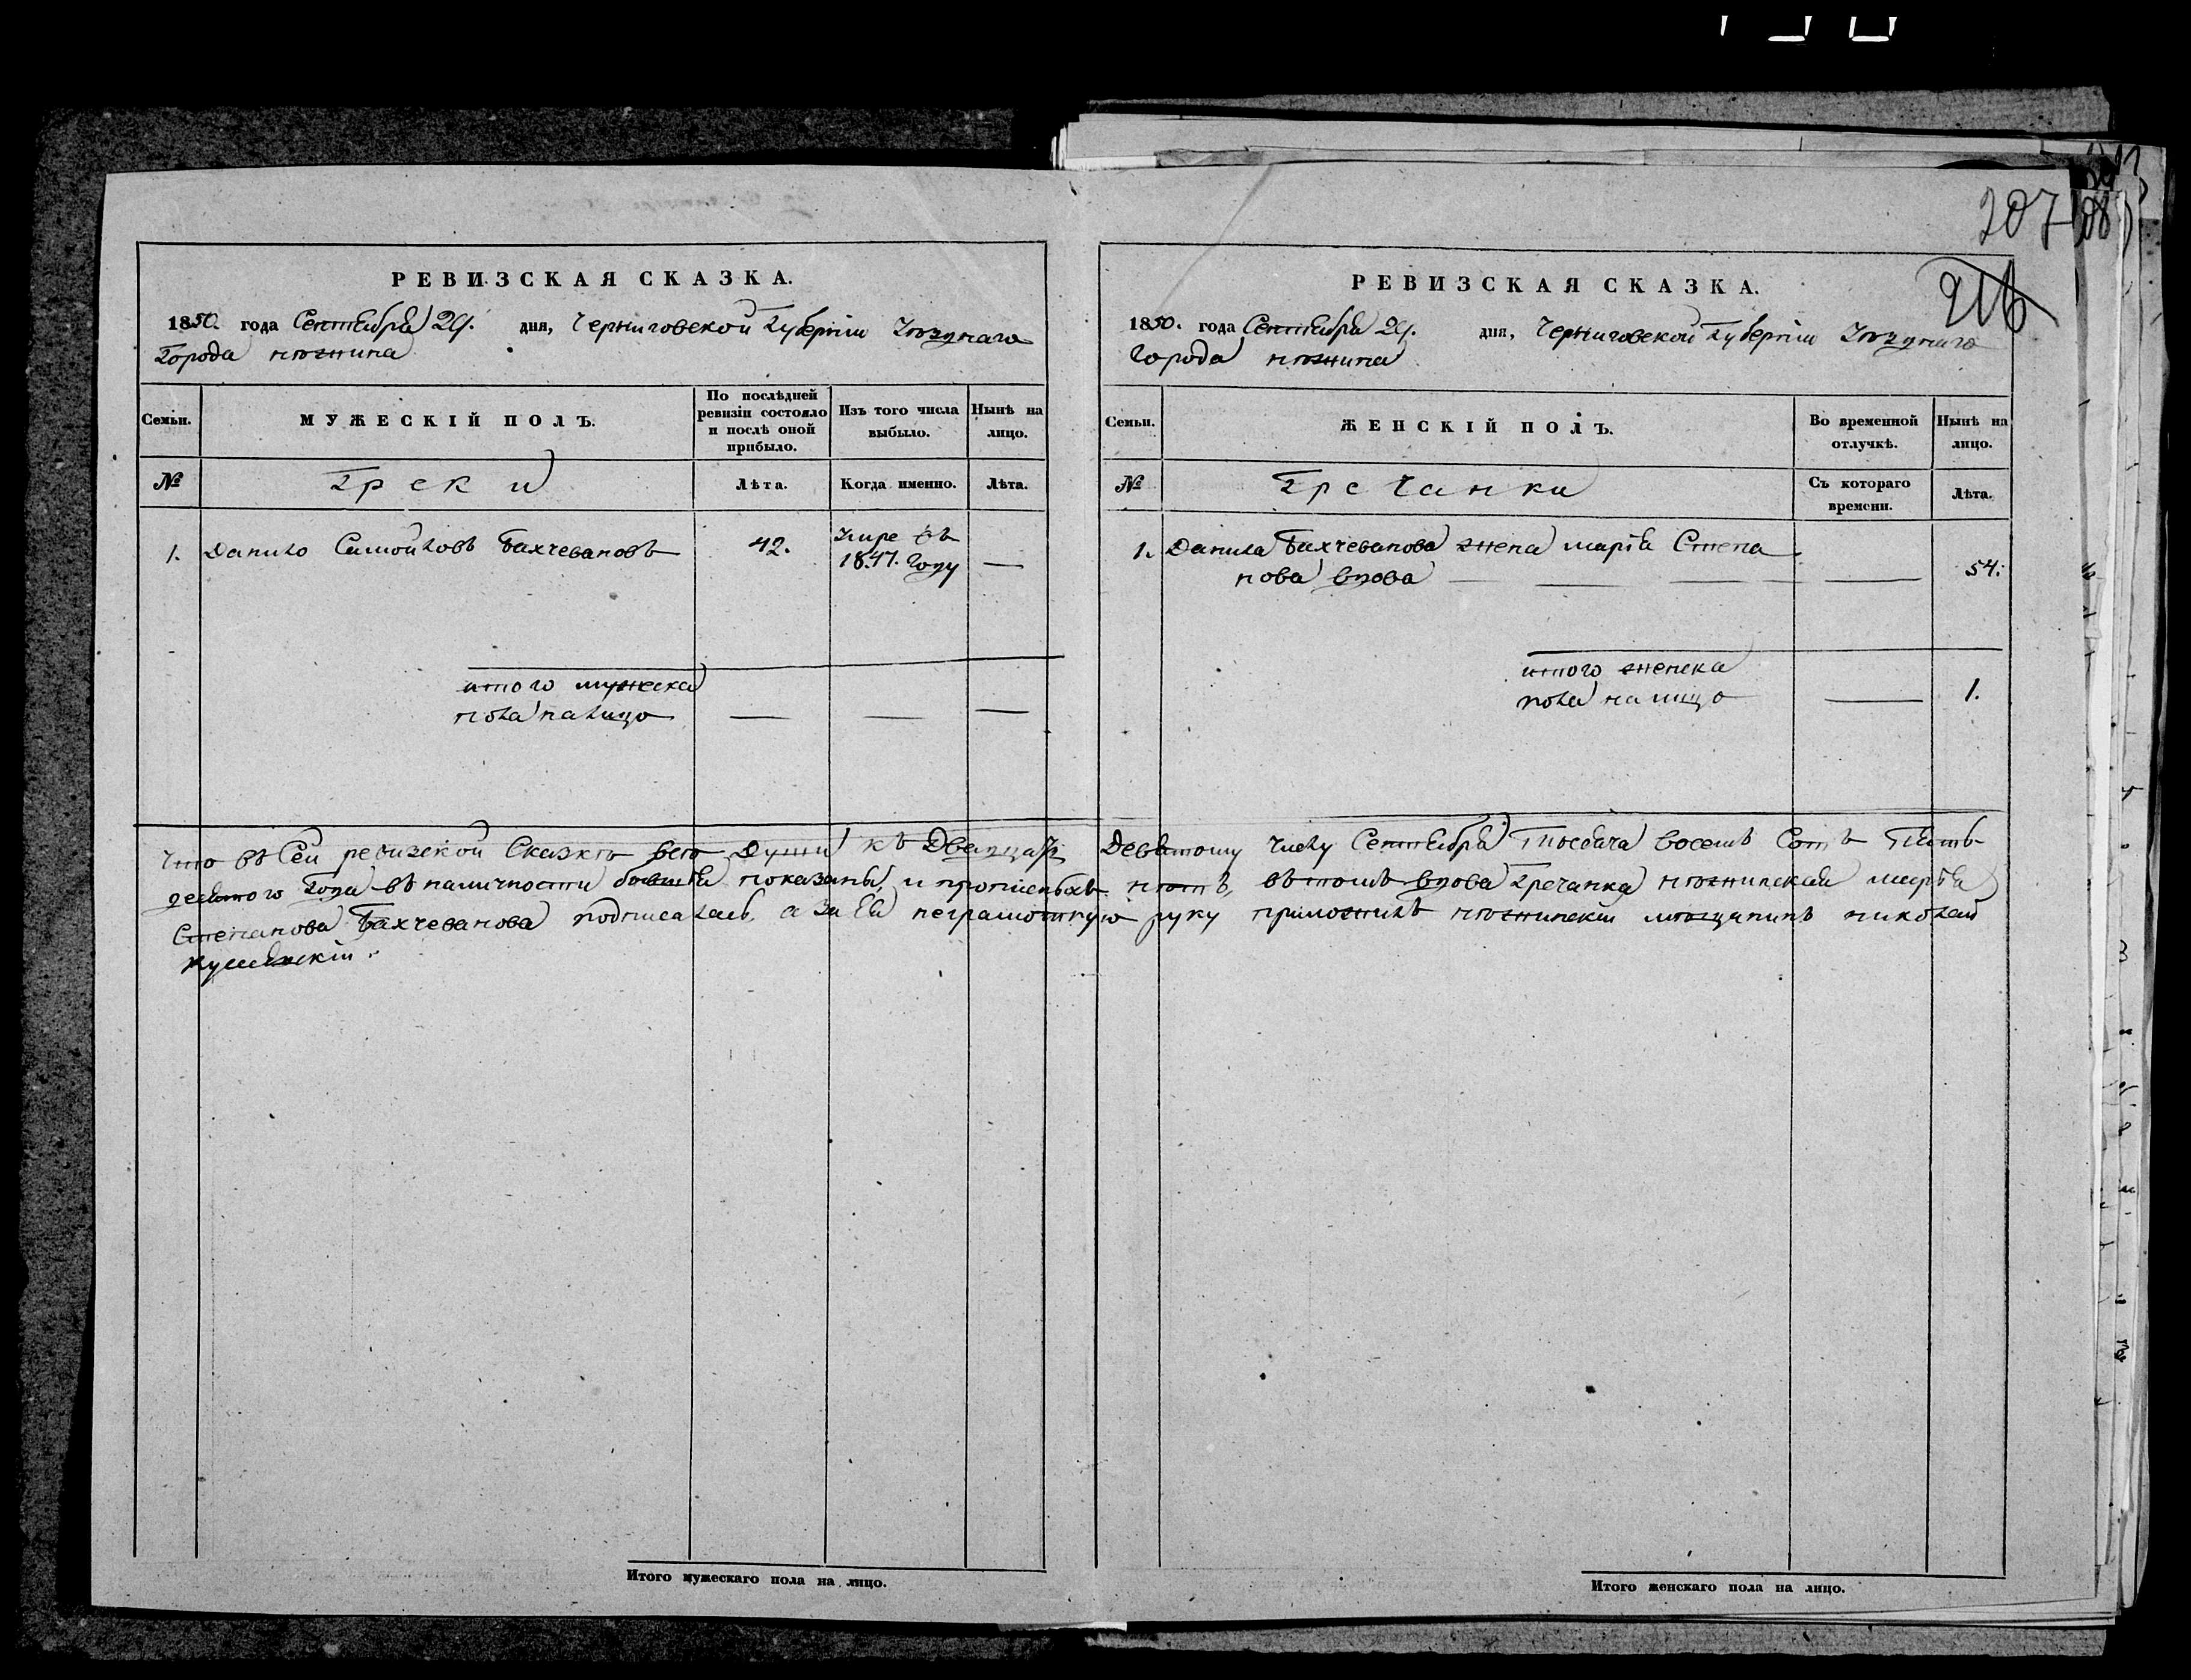 207
216
РЕВИЗСКАЯ СКАЗКА.
1850. года Сентября 29. дня, Черниговской Губернiи Уѣзднаго
Города нѣжина
Семьи.
МУЖЕСКІЙ ПОЛЪ.
По послѣдней ревизіи состояло и послѣ оной прибыло.
Изъ того числа выбыло.
Нынѣ на лицо.
№
Греки
Лѣта.
Когда именно.
Лѣта.
1. Данило Самойловъ Бахчевановъ 42. умре въ 1847. Году —
итого мужеска
пола налицо — — —
РЕВИЗСКАЯ СКАЗКА.
1850. года Сентября 29. дня, Черниговской Губернiи Уѣзднаго
Города нѣжина
Семьи.
ЖЕНСКІЙ ПОЛЪ.
Во временной отлучкѣ.
Нынѣ на лицо.
№
Гречанки
Съ котораго времени.
Лѣта.
1. Данила Бахчеванова жена марiя Степа
нова вдова — — — — 54.
итого женска
пола налицо — 1.
Что въ Сей ревизской Сказкѣ всѣ Души къ Двадцать Девятому числу Сентября Тысяча восемъ Сотъ Пять-
десятого Года въ наличности бывшiя показаны, и прописныхъ нѣтъ, въ томъ вдова Гречанка нѣжинская марiя
Степанова Бахчеванова подписалась, а за Ея неграмотную руку приложилъ нѣжинскiй мѣщанинъ николай
Итого мужескаго пола на лицо.
Итого женскаго пола на лицо.